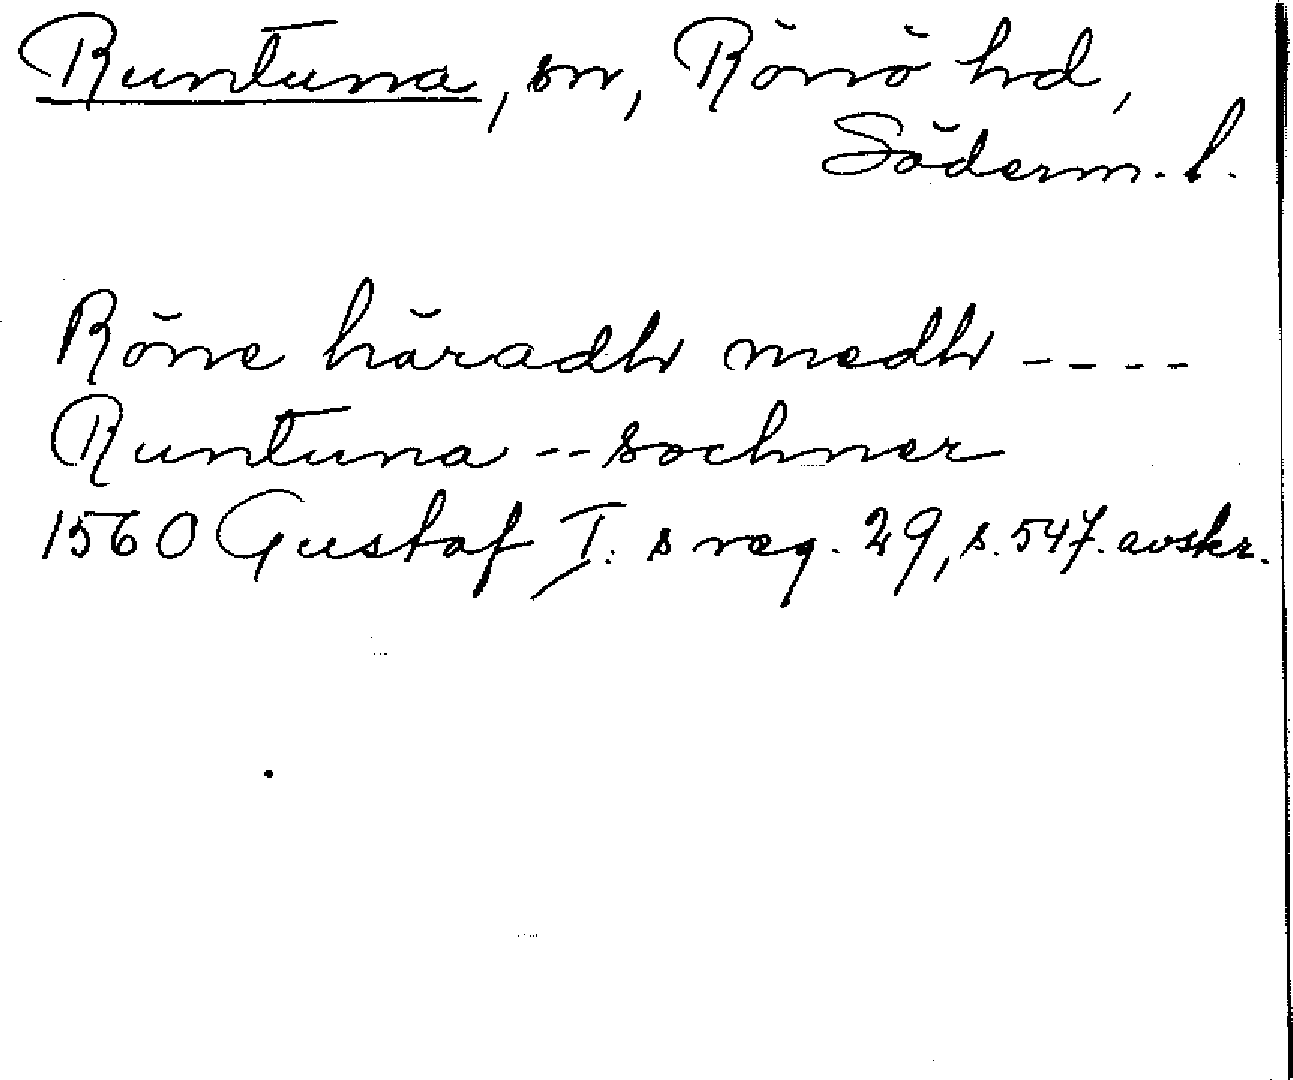 Runtuna, sn, Rönö hd,
Söderm. l.
Röne häradh medh ----
Runtuna -- sochner
1560 Gustaf I:s reg. 29, s. 547. avskr.